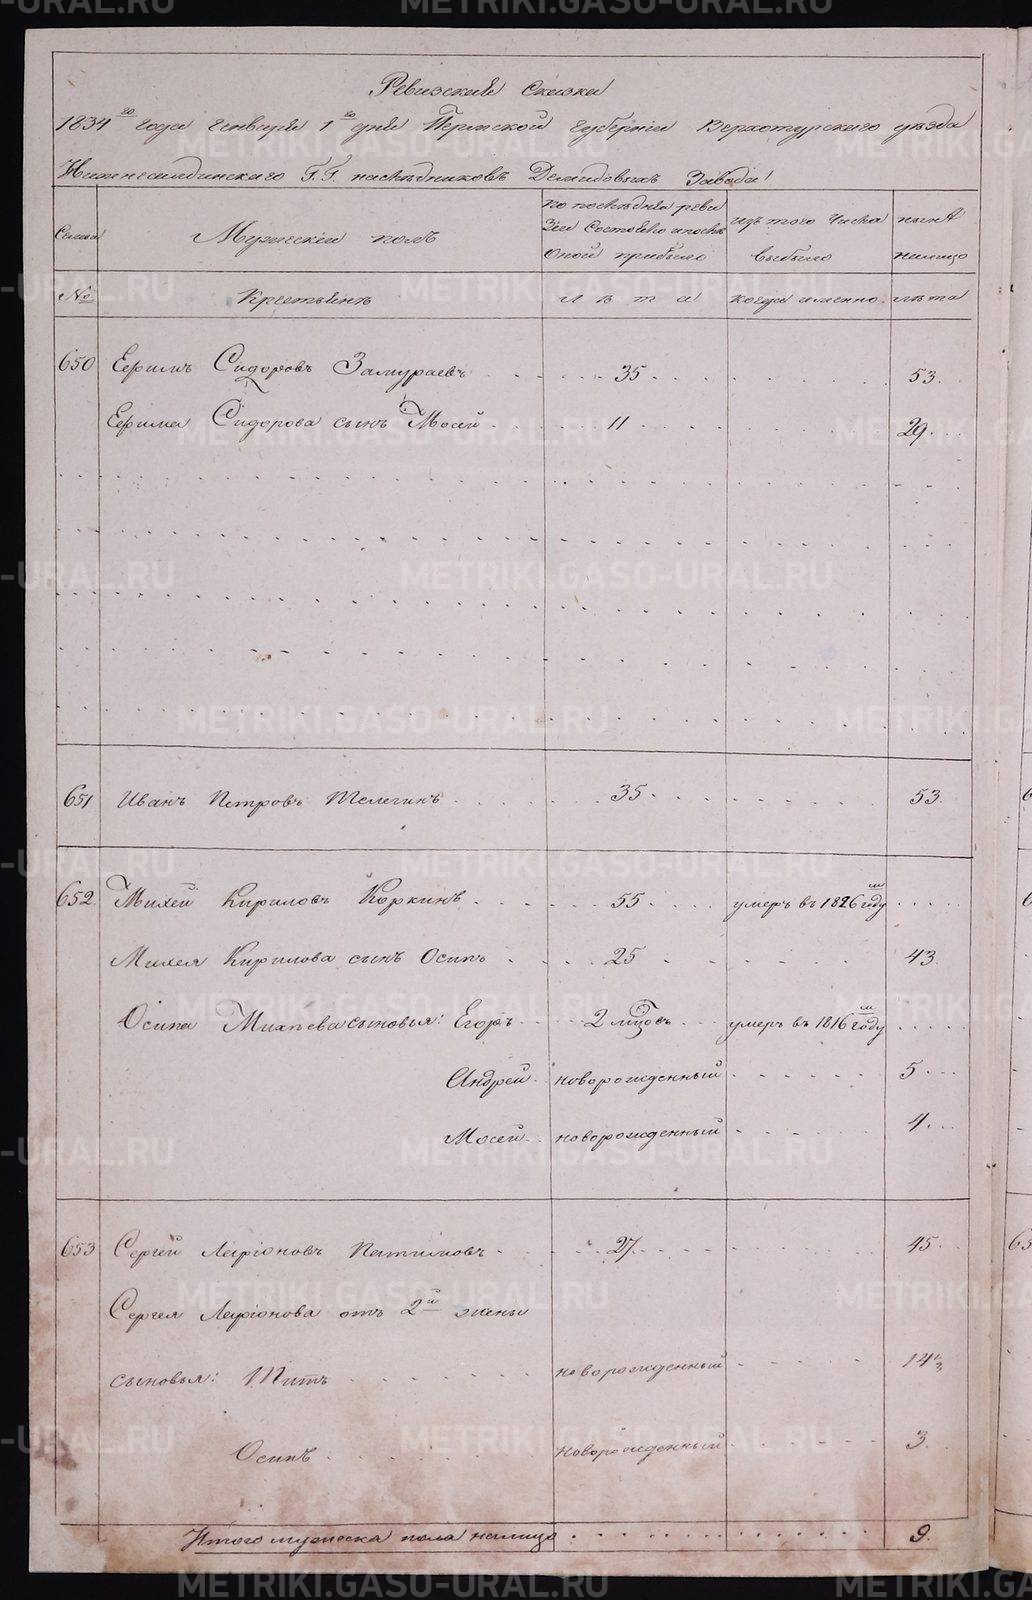 Ревизская Сказка
1834го года Генваря 1го дня Пермской Губернии Верхотурского уезда
Нижнесалдинского Г.Г. наследниковъ Демидовыхъ Завода
Семьи
Мужескій полъ
по последней реви
зіи Состояло и после
Оной прибыло
изъ того Числа
выбыло
ныне
налицо
№
Крестьянъ
л е т а
когда именно
лета
650 Ефимъ Сидоровъ Замураевъ 35 53
Ефима Сидорова сынъ Мосей 11 29
651 Иванъ Петровъ Телегинъ 35 53
652 Михей Кириловъ Коркинъ 55 умеръ въ 1826м году
Михея Кирилова сынъ Осипъ 25 43
Осипа Михеева сыновья: Егоръ 2 мцовъ умеръ въ 1816м году
Андрей новорожденный 5
Мосей новорожденный 4
653 Сергей Ларіоновъ 27 45
Сергея Ларіонова отъ 2й жены
сыновья: Титъ новорожденный 14½
Осипъ новорожденный 3
Итого мужеска пола налицо 9
METRIKI.GASO-URAL.RU